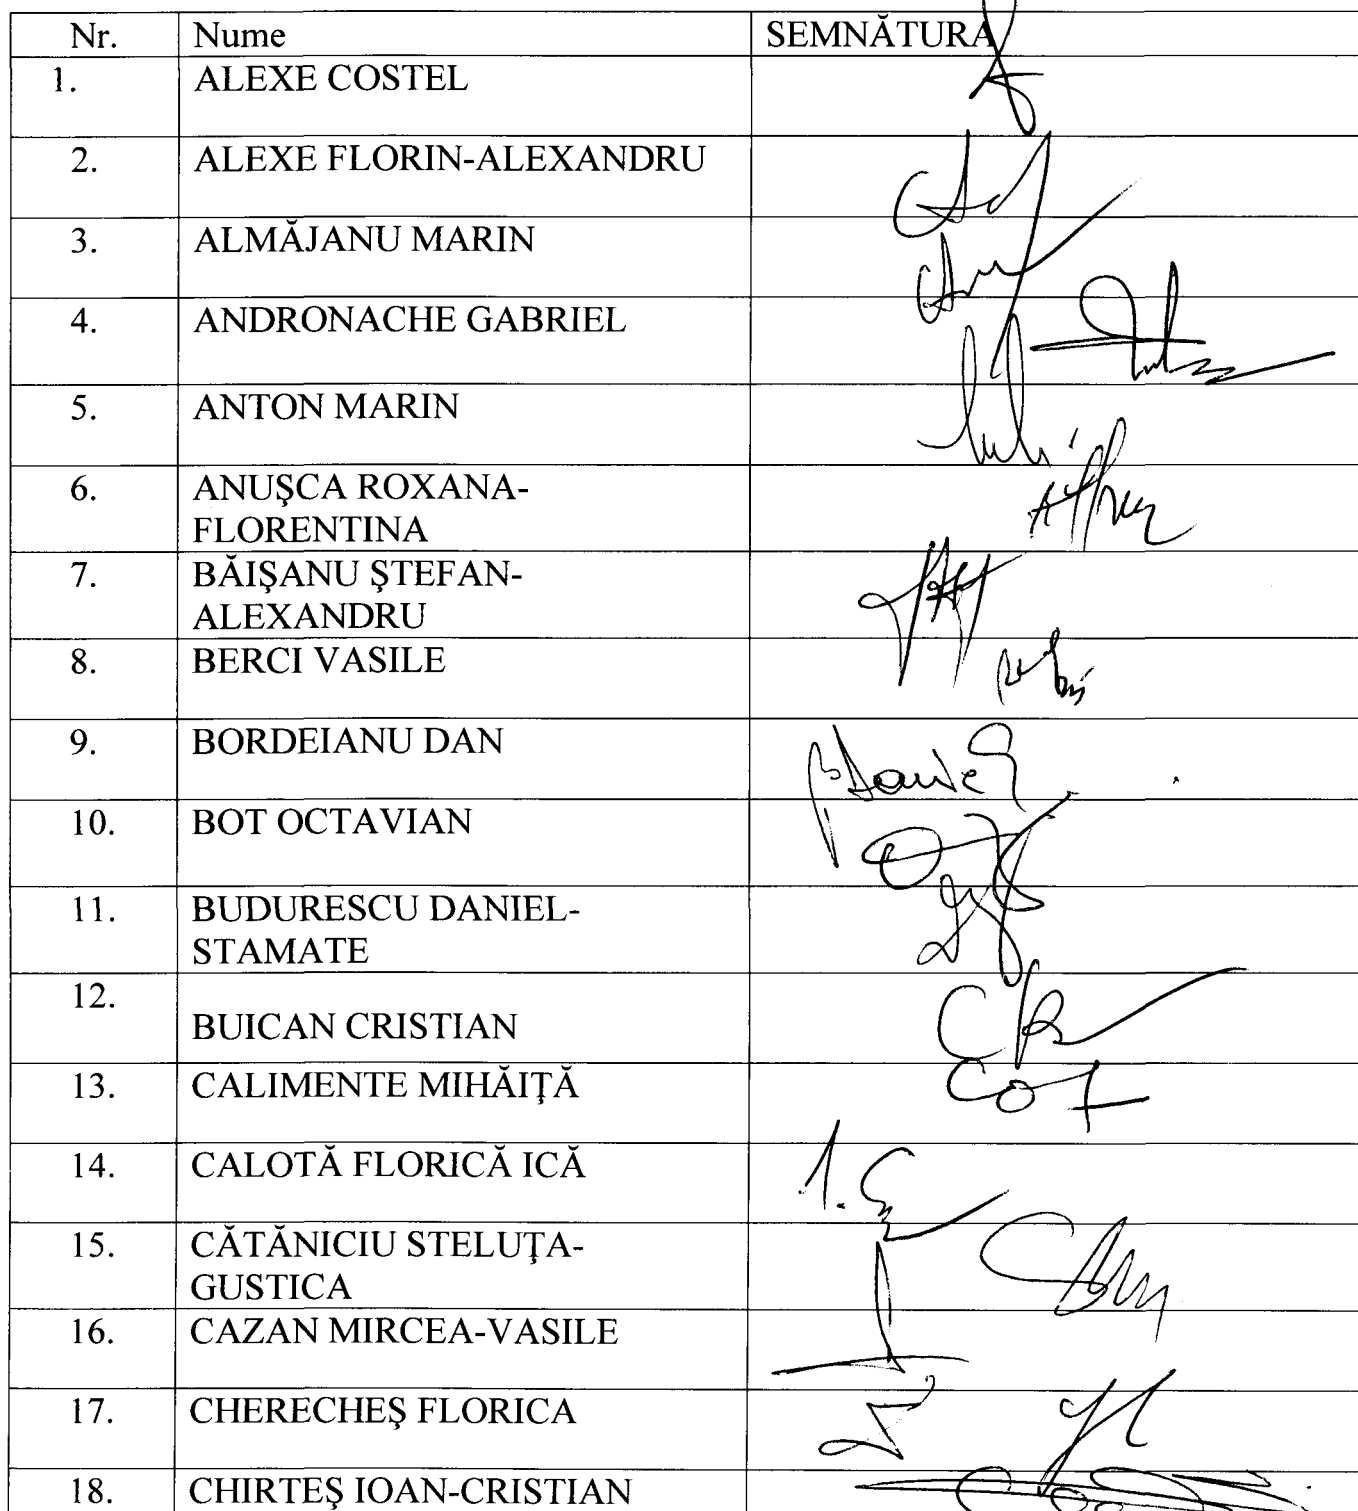 Nr. Nume SEMNĂTURA
1. ALEXE COSTEL
2. ALEXE FLORIN-ALEXANDRU
3. ALMĂJANU MARIN
4. ANDRONACHE GABRIEL
5. ANTON MARIN
6. ANUŞCA ROXANA-
FLORENTINA
7. BĂIŞANU ŞTEFAN-
ALEXANDRU
8. BERCI VASILE
9. BORDEIANU DAN
10. BOT OCTAVIAN
11. BUDURESCU DANIEL-
STAMATE
12.
BUICAN CRISTIAN
13. CALIMENTE MIHĂIŢĂ
14. CALOTĂ FLORICĂ ICĂ
15. CĂTĂNICIU STELUŢA-
GUSTICA
16. CAZAN MIRCEA-VASILE
17. CHERECHEŞ FLORICA
18. CHIRTEŞ IOAN-CRISTIAN